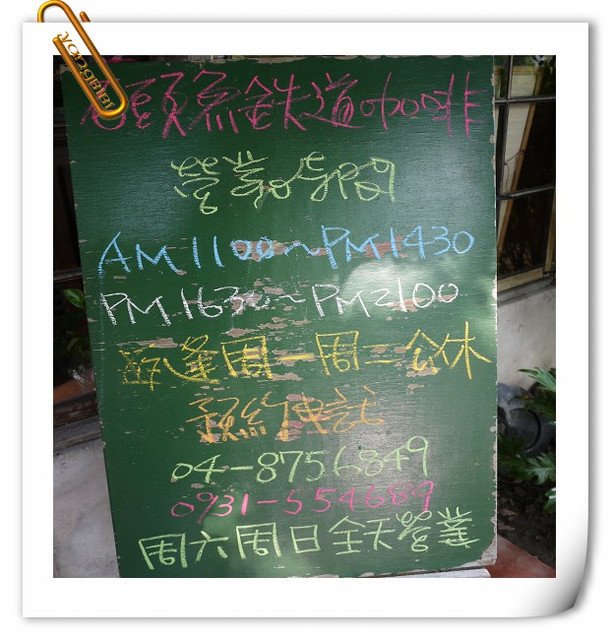 頭烏鉄道咖啡
營業時間
AM1100~PM1430
PM1630~PM2100
每逢周一周二公休
預約電話
04-8756849
0931-554689
周六周日全天營業